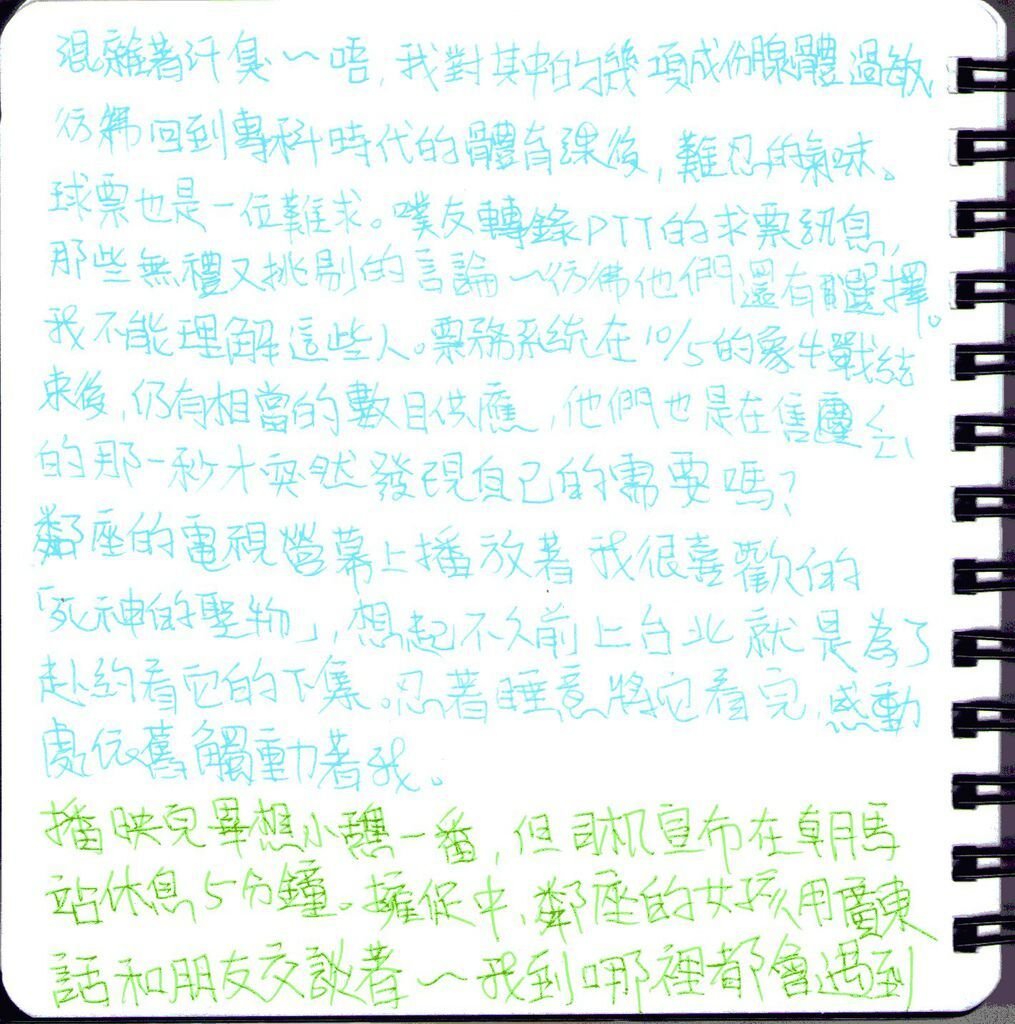 混雜著汗臭～唔,我對其中的幾項成份腺體過敏,
彷彿回到專科時代的體育課後,難忍的氣味。
球票也是一位難求。噗友轉錄PTT的求票訊息,
那些無禮又挑剔的言論～彷彿他們還有選擇。
我不能理解這些人。票務系統在10/5的象牛戰結
束後,仍有相當的數目供應,他們也是在售罄
的那一秒才突然發現自己的需要嗎?
鄰座的電視螢幕上播放著我很喜歡的
「死神的聖物」,想起不久前上台北就是為了
赴約看它的下集。忍著睡意將它看完,感動
處依舊觸動著我。
播映完畢想小憩一番,但司機宣布在朝馬
站休息5分鐘。擁促中,鄰座的女孩用廣東
話和朋友交談著～我到哪裡都會遇到